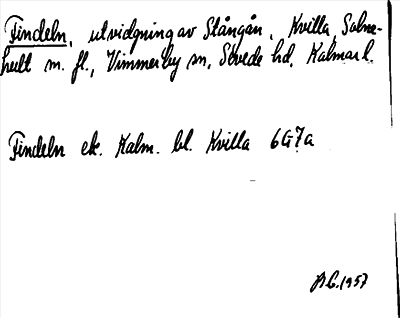 Findeln, utvidgning av Stångån, Kvilla, Salne-
hult m. fl., Vimmerby sn, Sevede hd, Kalmar l.
Findeln ek. Kalm. bl. Kvilla 6G7a
1957